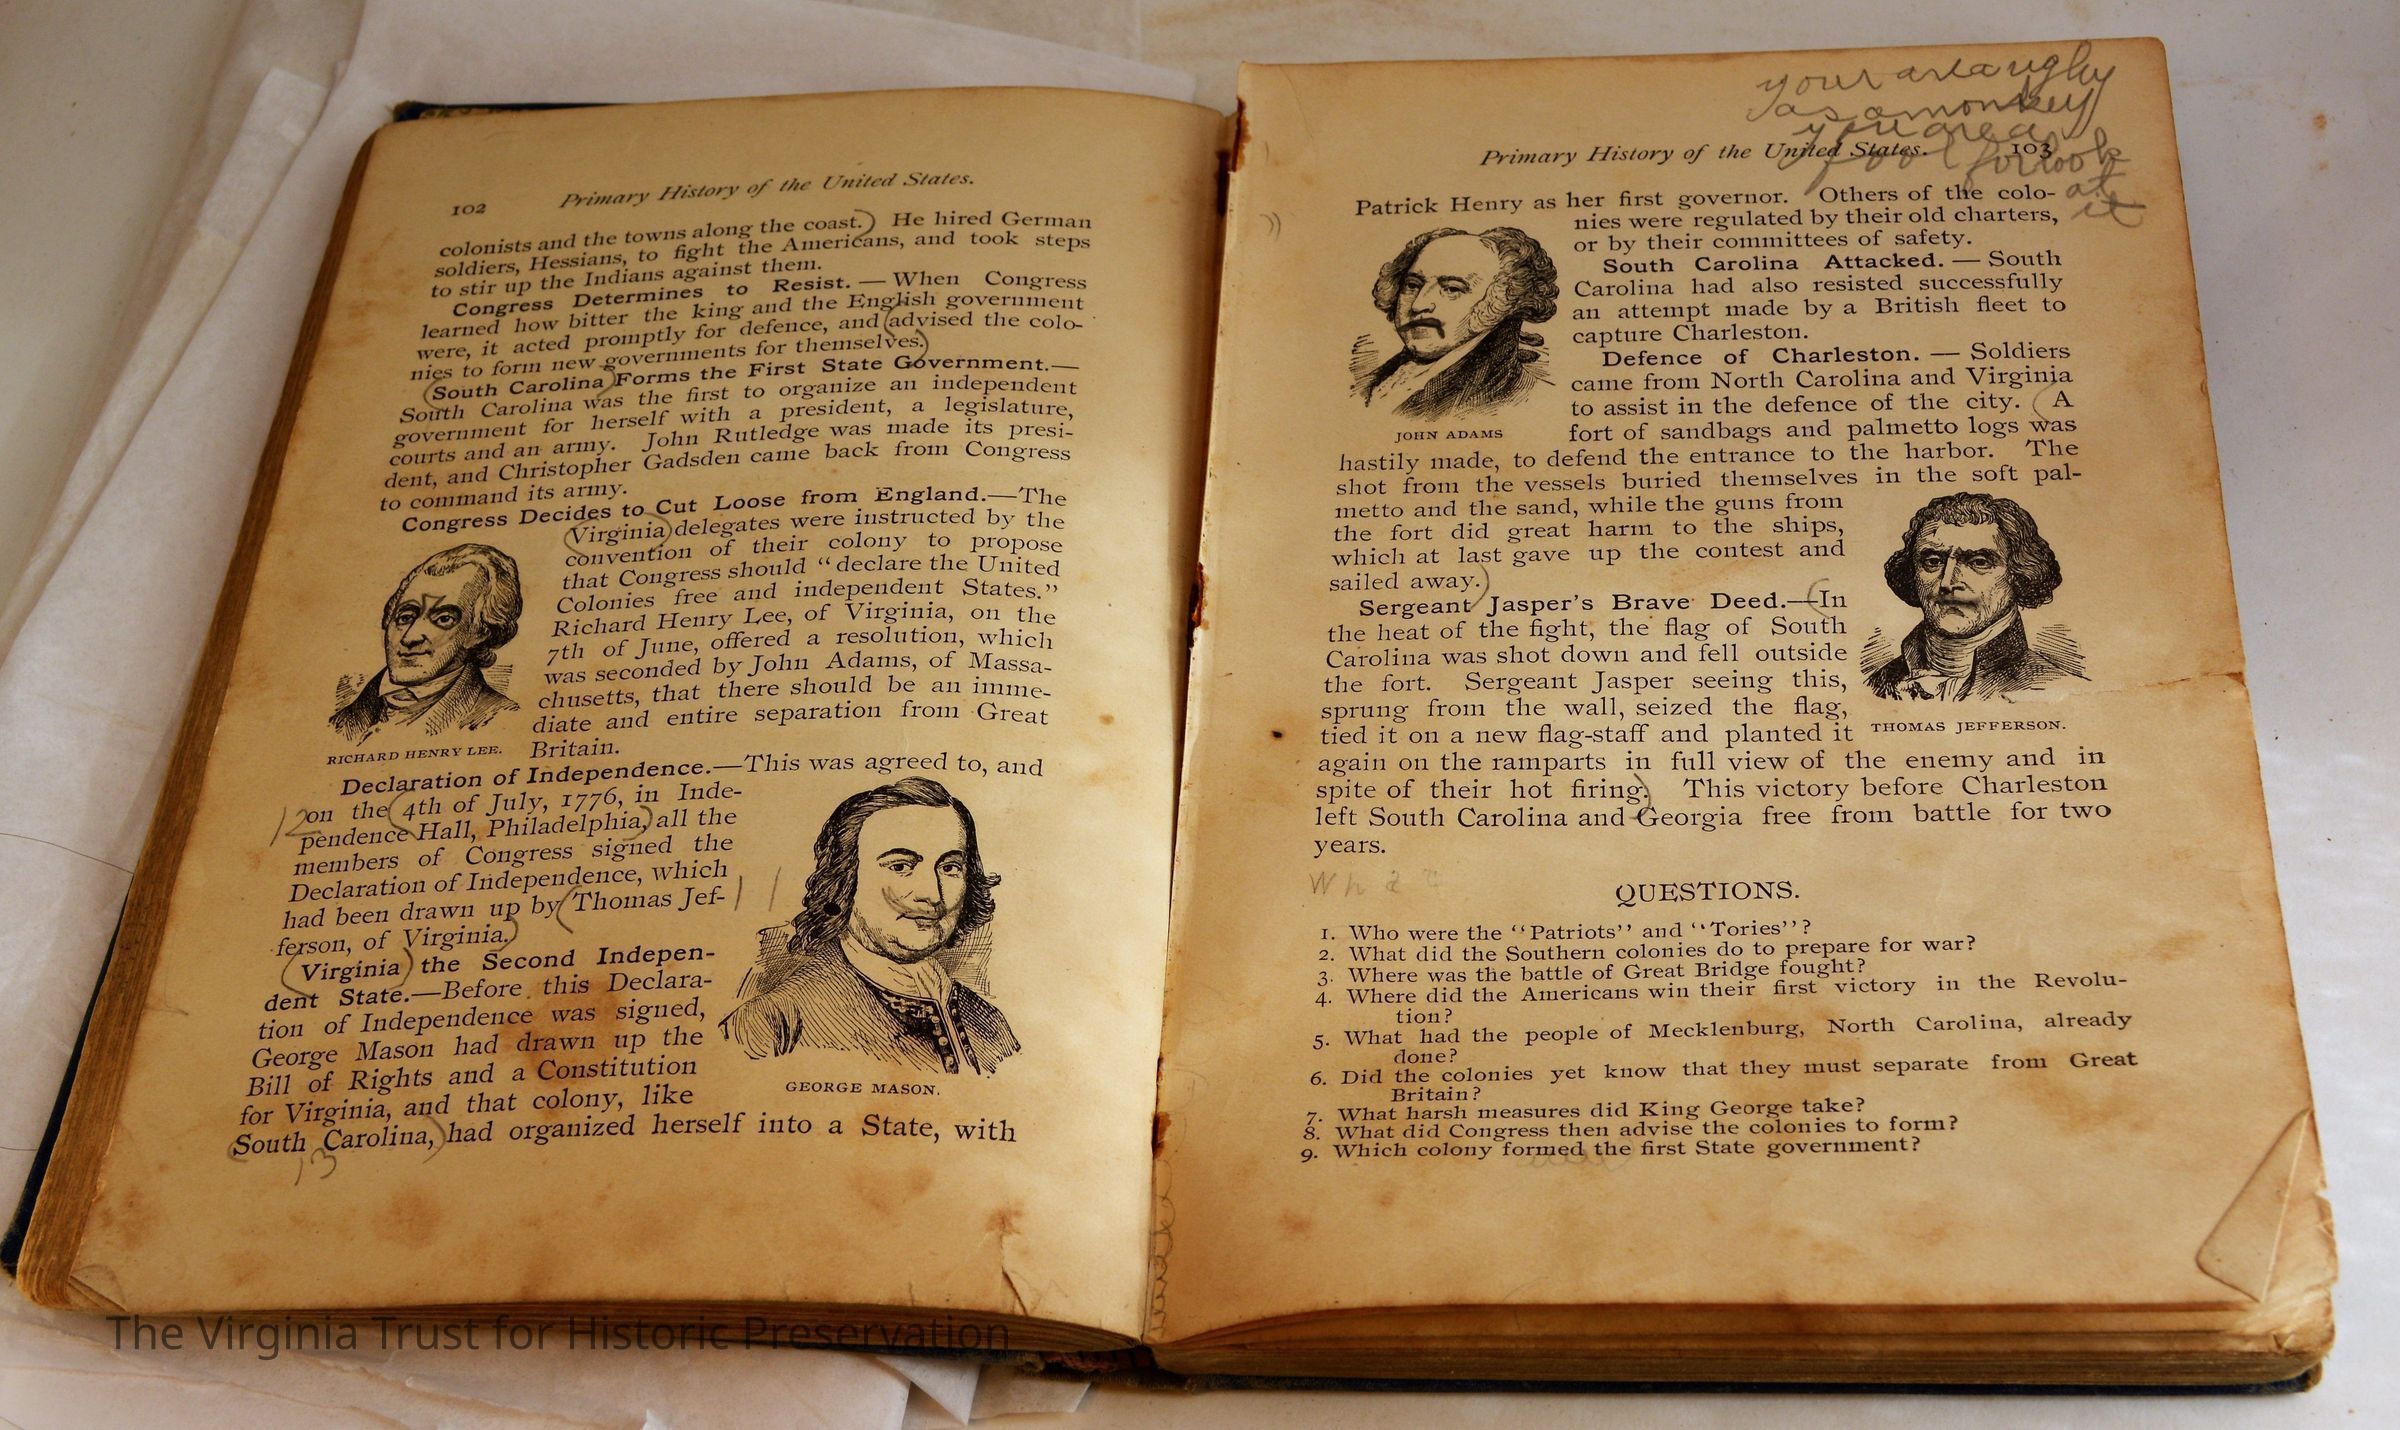 102
Primary History of the United States.
colonists and the towns along the coast.) He hired German
soldiers, Hessians, to fight the Americans, and took steps
to stir up the Indians against them.
Congress Determines to Resist. — When Congress
learned how bitter the king and the English government
were, it acted promptly for defence, and (advised the colo-
nies to form new governments for themselves.)
(South Carolina) Forms the First State Government.—
South Carolina was the first to organize an independent
government for herself with a president, a legislature,
courts and an army. John Rutledge was made its presi-
dent, and Christopher Gadsden came back from Congress
to command its army.
Congress Decides to Cut Loose from England.—The
(Virginia) delegates were instructed by the
convention of their colony to propose
that Congress should “declare the United
Colonies free and independent States.”
Richard Henry Lee, of Virginia, on the
7th of June, offered a resolution, which
was seconded by John Adams, of Massa-
chusetts, that there should be an imme-
diate and entire separation from Great
Britain.
RICHARD HENRY LEE.
Declaration of Independence.—This was agreed to, and
12
on the (4th of July, 1776, in Inde-
pendence Hall, Philadelphia,) all the
members of Congress signed the
Declaration of Independence, which
had been drawn up by (Thomas Jef-
11
ferson, of Virginia.)
(Virginia) the Second Indepen-
dent State.—Before this Declara-
tion of Independence was signed,
George Mason had drawn up the
Bill of Rights and a Constitution
for Virginia, and that colony, like
GEORGE MASON.
(South Carolina,) had organized herself into a State, with
13
your are a ugly
as a monkey
you are a
fool for look
at
it
Primary History of the United States.
103
Patrick Henry as her first governor. Others of the colo-
nies were regulated by their old charters,
or by their committees of safety.
South Carolina Attacked. — South
Carolina had also resisted successfully
an attempt made by a British fleet to
capture Charleston.
Defence of Charleston. — Soldiers
came from North Carolina and Virginia
to assist in the defence of the city. (A
fort of sandbags and palmetto logs was
JOHN ADAMS
hastily made, to defend the entrance to the harbor. The
shot from the vessels buried themselves in the soft pal-
metto and the sand, while the guns from
the fort did great harm to the ships,
which at last gave up the contest and
sailed away.)
Sergeant Jasper’s Brave Deed.—(In
the heat of the fight, the flag of South
Carolina was shot down and fell outside
the fort. Sergeant Jasper seeing this,
sprung from the wall, seized the flag,
tied it on a new flag-staff and planted it
THOMAS JEFFERSON.
again on the ramparts in full view of the enemy and in
spite of their hot firing.) This victory before Charleston
left South Carolina and Georgia free from battle for two
years.
QUESTIONS.
1. Who were the “Patriots” and “Tories”?
2. What did the Southern colonies do to prepare for war?
3. Where was the battle of Great Bridge fought?
4. Where did the Americans win their first victory in the Revolu-
tion?
5. What had the people of Mecklenburg, North Carolina, already
done?
6. Did the colonies yet know that they must separate from Great
Britain?
7. What harsh measures did King George take?
8. What did Congress then advise the colonies to form?
9. Which colony formed the first State government?
The Virginia Trust for Historic Preservation